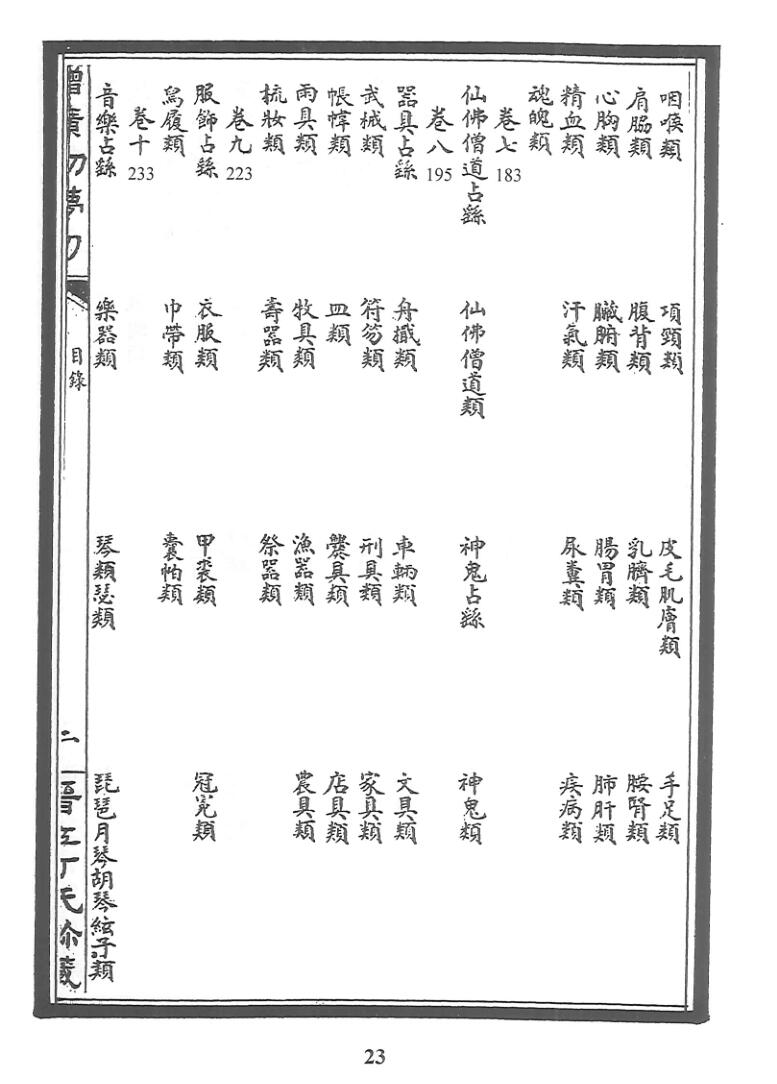 咽喉類　項頸類　皮毛肌膚類　手足類
肩脇類　腹背類　乳臍類　腰腎類
心胸類　臟腑類　腸胃類　肺肝類
精血類　汗氣類　尿糞類　疾病類
魂魄類
卷七 183
仙佛僧道占繇　仙佛僧道類　神鬼占繇　神鬼類
卷八 195
器具占繇　舟檝類　車輌類　文具類
武械類　符笏類　刑具類　家具類
帳幃類　皿類　爨具類　店具類
雨具類　牧具類　漁器類　農具類
梳妝類　壽器類　祭器類
卷九 223
服飾占繇　衣服類　甲裘類　冠冕類
舄履類　巾帶類　囊帕類
卷十 233
音樂占繇　樂器類　琴類瑟類　琵琶月琴胡琴絃子類
目錄
二
23